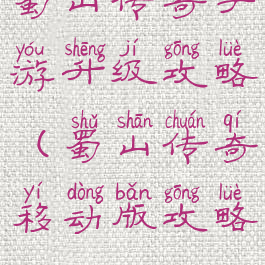 蜀山传奇手
yóu shēng jí gōng lüè
游升级攻略
shǔ shān chuán qí
（蜀山传奇
yí dòng bǎn gōng lüè
移动版攻略